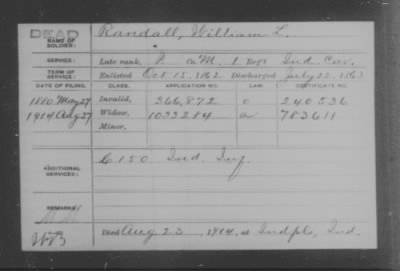 DEAD
NAME OF SOLDIER: Randall, William L.
SERVICE: Late rank, Co. M, 1 Reg't Ind. Cav.
TERM OF SERVICE: Enlisted Oct 15, 1862 Discharged July 22, 1863
DATE OF FILING. CLASS. APPLICATION NO. LAW. CERTIFICATE NO.
1880 May 27 Invalid, 366,872 240536
1914 Aug 27 Widow, 1033284 783611
Minor,
ADDITIONAL SERVICES: C 150 Ind. Inf.
REMARKS:
Died Aug 23, 1914, at Indpls, Ind.